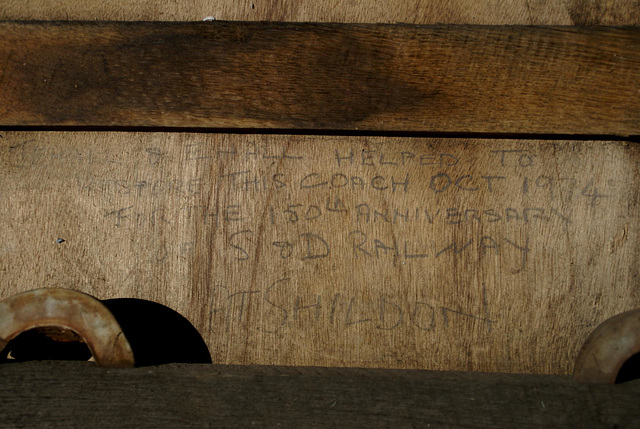 HELPED TO
RESTORE THIS COACH OCT 1974
FOR THE 150th ANNIVERSARY
OF S & D RAILWAY
AT SHILDON